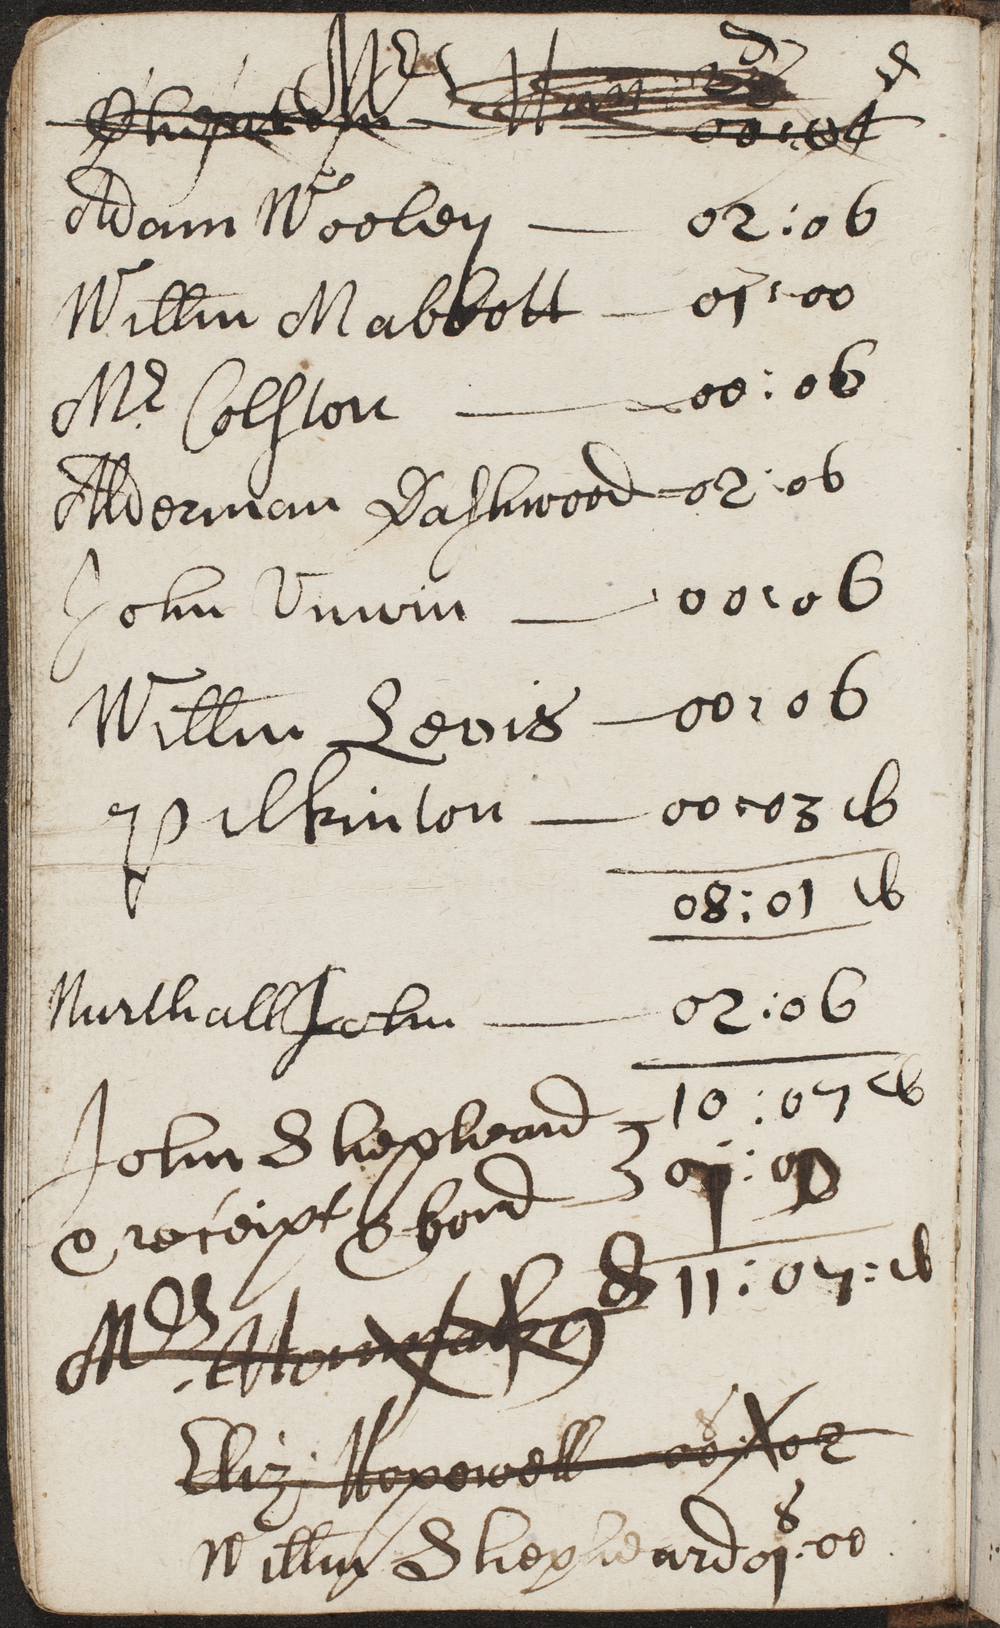 Mr
00:04
Adam Wooley — 02:06
Willm Mabbott — 01:00
Mr Colston — 00:06
Alderman Dashwood — 02:06
John Unwin — 00:06
Willm Levis — 00:06
Pilkinton — 00:03 ob
08:01 ob
Nurthall John — 02:06
10:07 ob
John Shepheard
receipt & bond 01:00
11:07:ob
Mrs
Eliz: Hopewell 00:02
s
Willm Shepheard 01:00